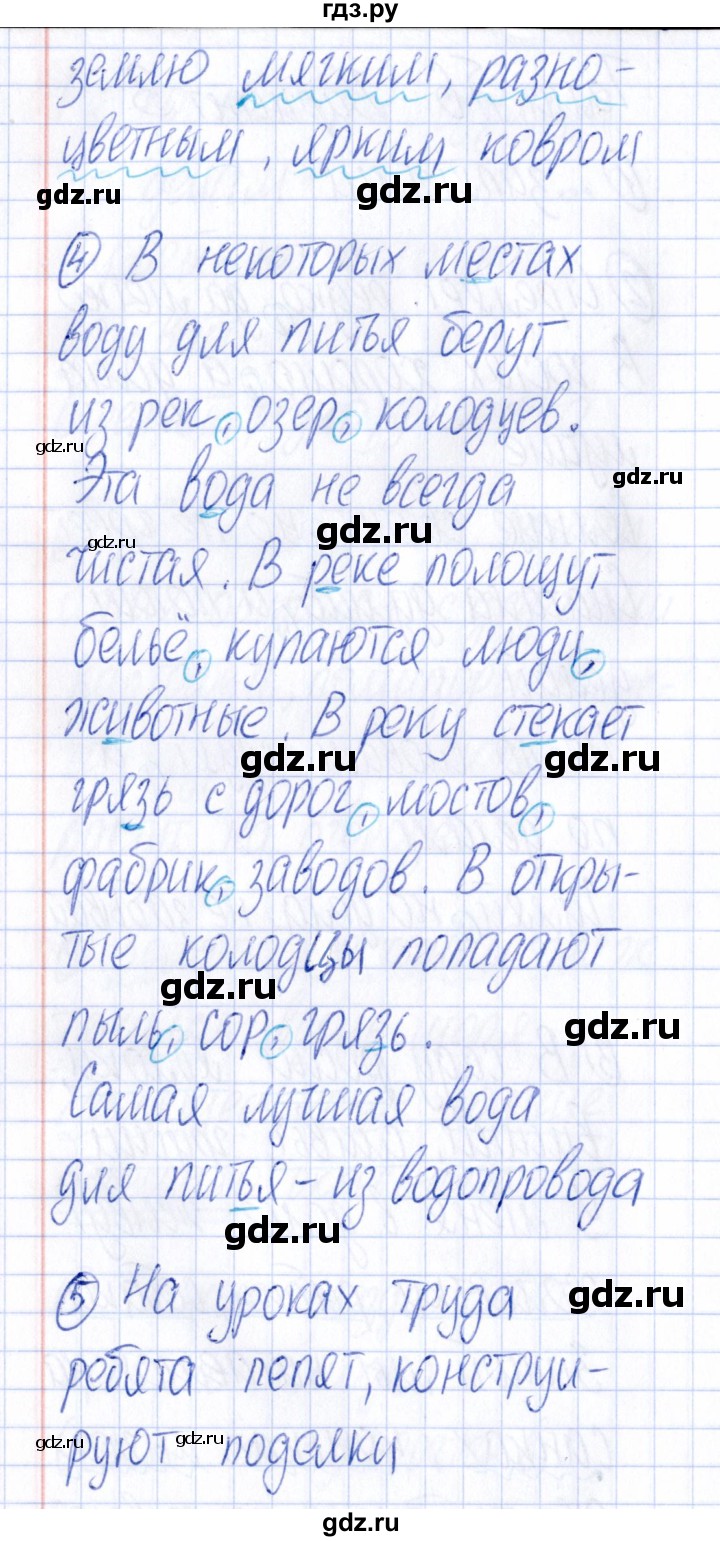 гдз.ру
землю мягким, разно-
цветным, ярким ковром
gdz.ru gdz.ru
④ В некоторых местах
воду для питья берут
из рек, озер, колодцев.
gdz.ru
gdz.ru
Эта вода не всегда
gdz.ru
gdz.ru
чистая. В реке полощут
бельё, купаются люди,
животные. В реку стекает
gdz.ru gdz.ru
грязь с дорог, мостов,
фабрик, заводов. В откры-
тые колодцы попадают
gdz.ru
пыль, сор, грязь.
gdz.ru
Самая лучшая вода
для питья - из водопровода
gdz.ru
⑤ На уроках труда
gdz.ru
ребята лепят, конструи-
руют поделки
gdz.ru gdz.ru
gdz.ru